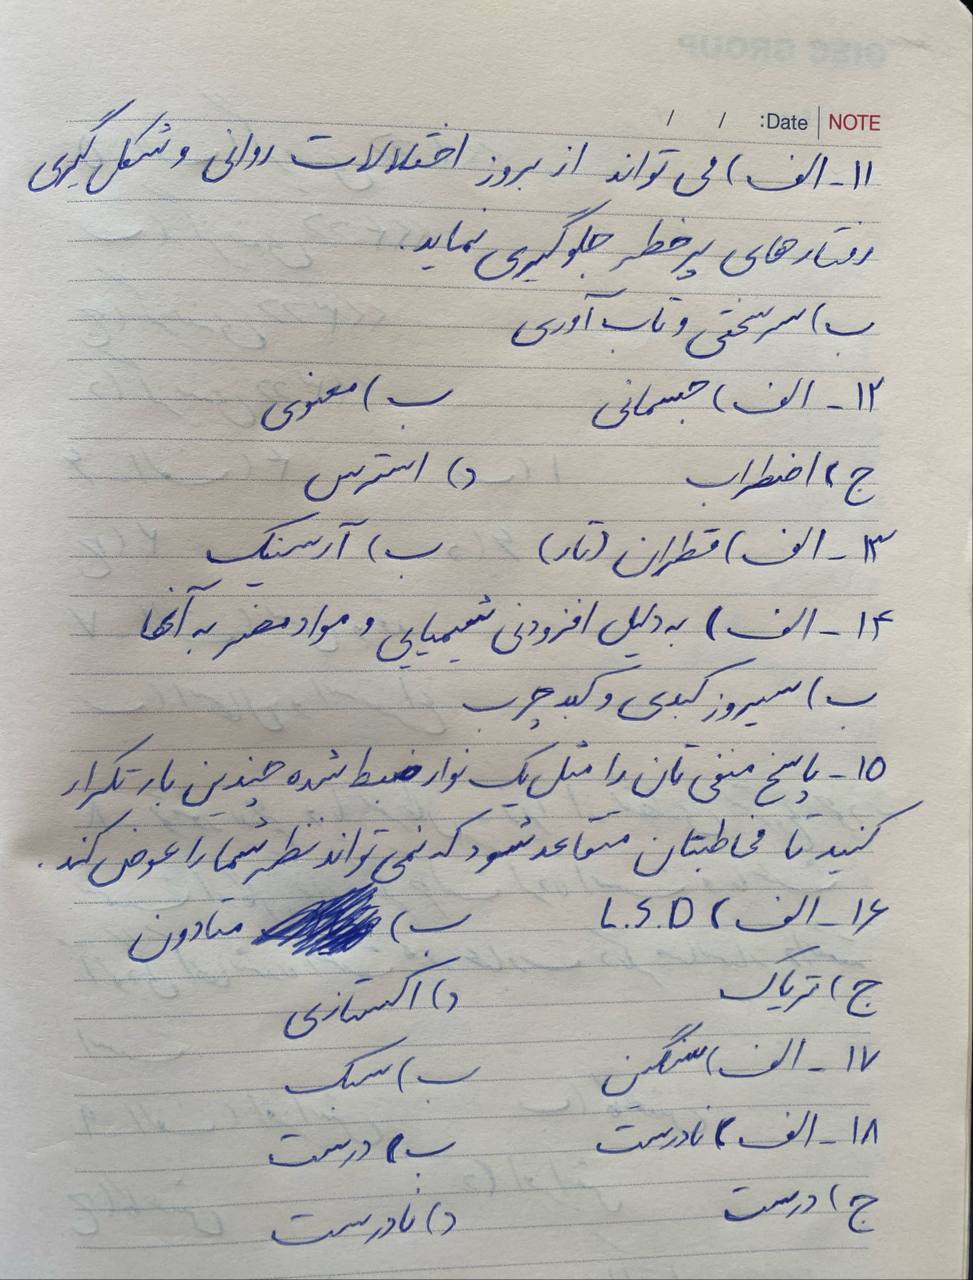 NOTE | Date: / /
۱۱_ الف) می تواند از بروز اختلالات روانی و شکل گیری
رفتارهای پرخطر جلوگیری نماید.
ب) سرسختی و تاب آوری
۱۲_ الف) جسمانی ب) معنوی
ج) اضطراب د) استرس
۱۳_ الف) قطران (تار) ب) آرسنیک
۱۴_ الف) به دلیل افزودنی شیمیایی و مواد مضر به آنها
ب) سیروز کبدی و کبد چرب
۱۵_ پاسخ منفی تان را مثل یک نوار ضبط شده چندین بار تکرار
کنید تا مخاطبتان متقاعد شود که نمی تواند نظر شما را عوض کند.
۱۶_ الف) L.S.D ب) متادون
ج) تریاک د) اکستازی
۱۷_ الف) سنگین ب) سبک
۱۸_ الف) نادرست ب) درست
ج) درست د) نادرست